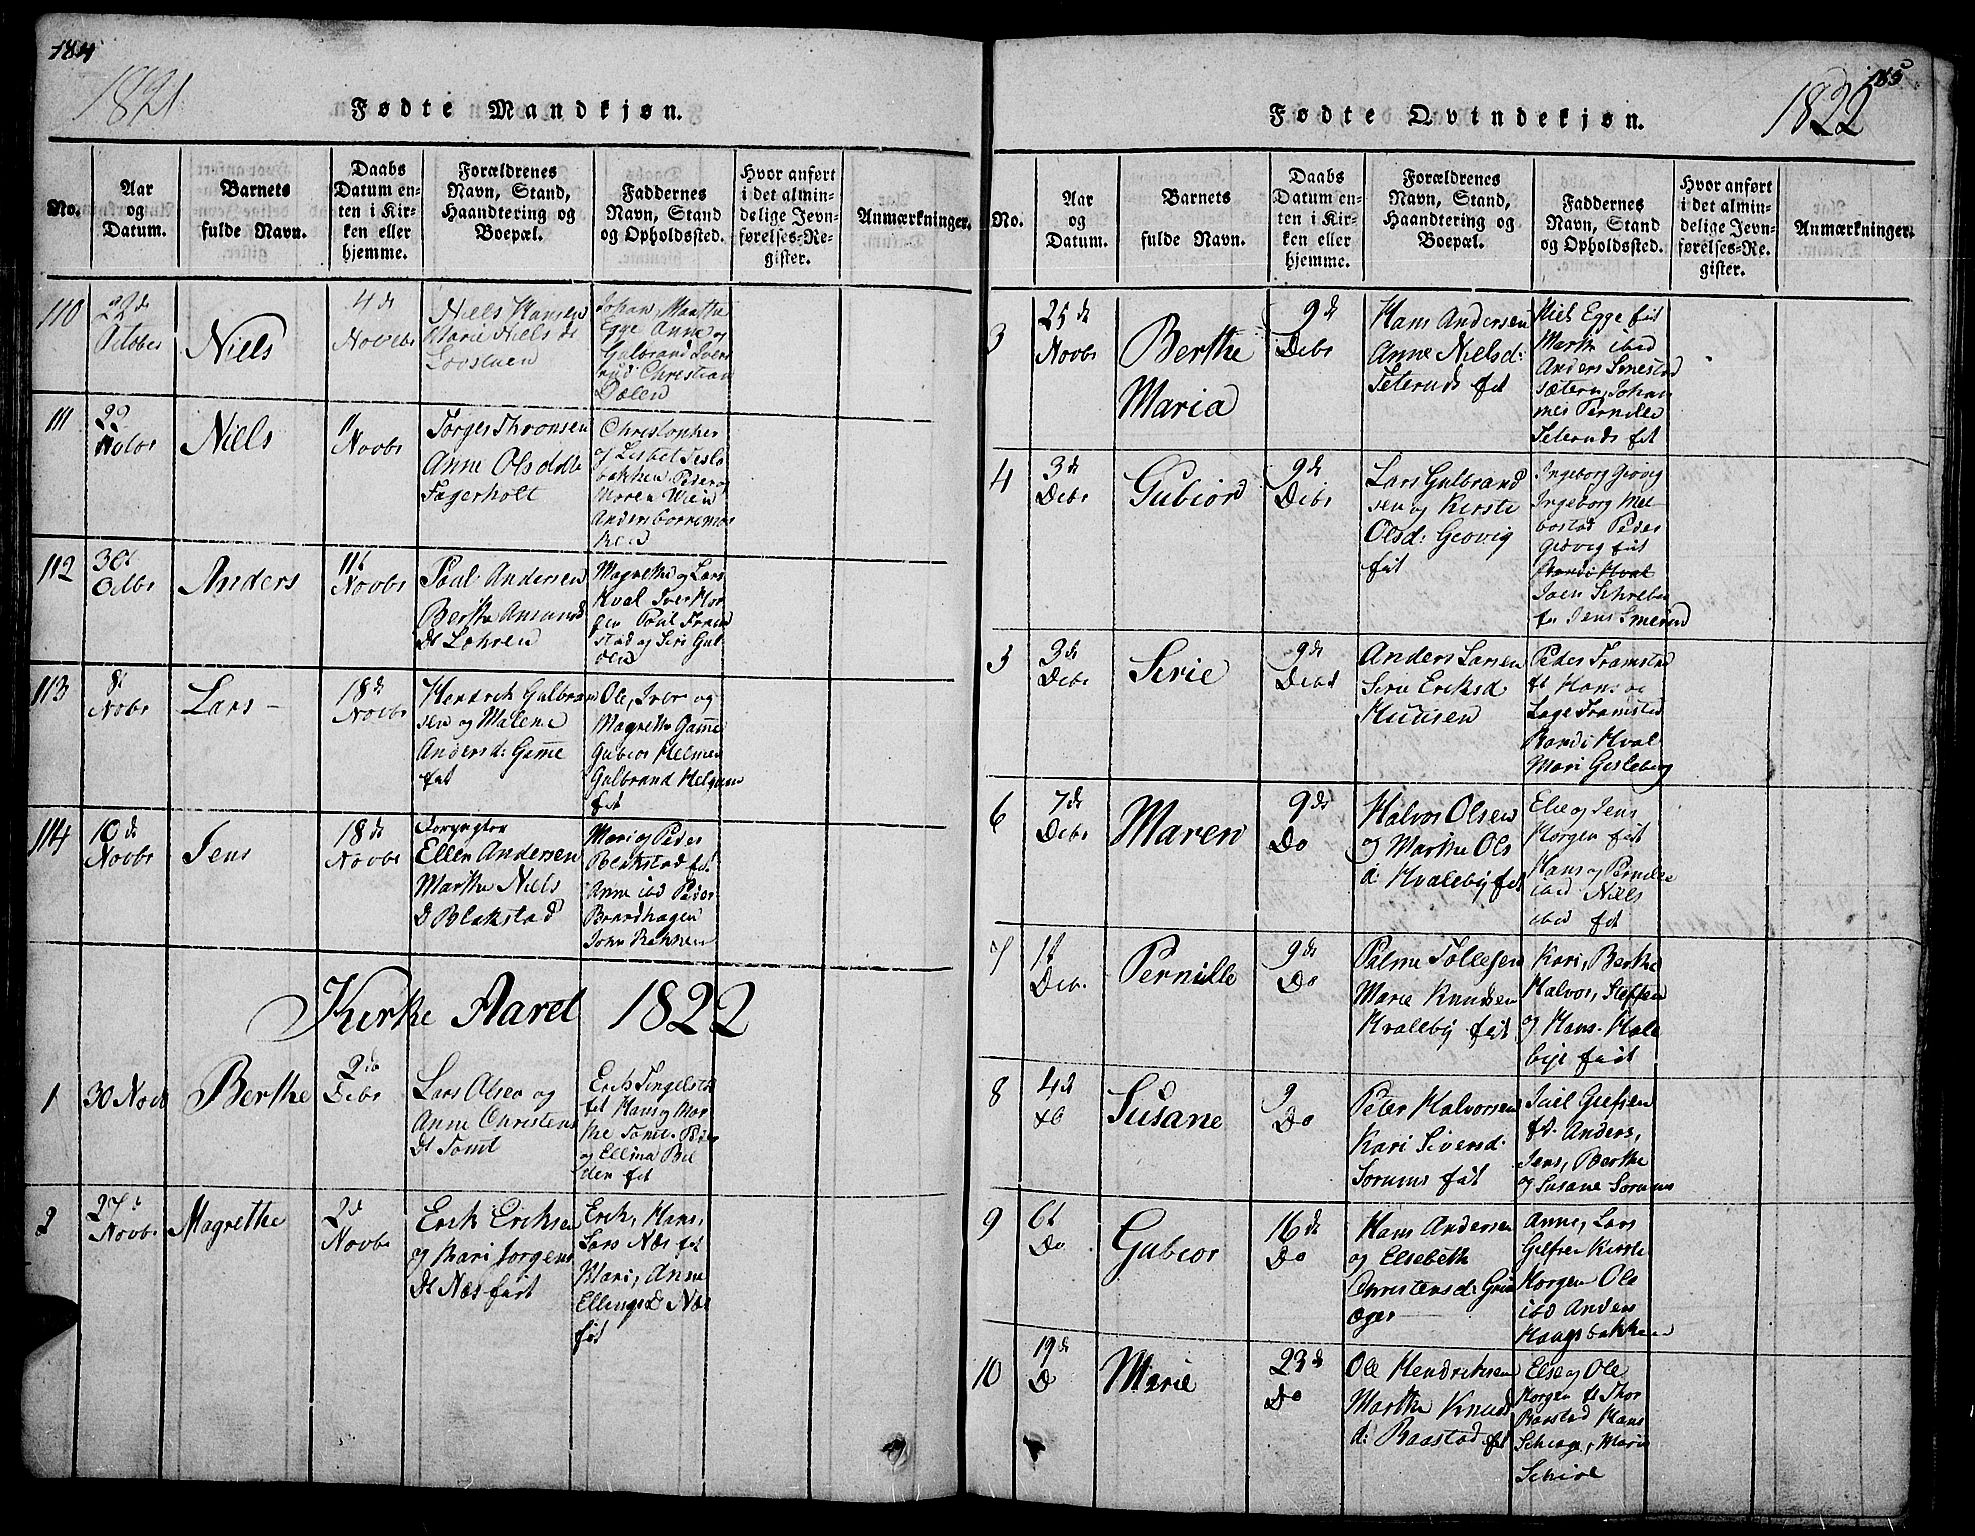 184
1821
Fødte Mandkjøn.
No.
Aar
og
Datum.
Barnets
fulde Navn.
Daabs
Datum en-
ten i Kir-
ken eller
hjemme.
Forældrenes
Navn, Stand,
Haandtering og
Boepæl.
Faddernes
Navn, Stand
og Opholdssted.
Hvor anført
i det almin-
delige Jevn-
førelses-Re-
gister.
Anmærkninger.
110
22de
Octobr
Niels
4de
Novbr
Niels Hansen
Marie Niels dt
Johan, Marthe
Egge Anne og
Gulbrand Ivers
rud Christian
Dælen
111
22
Niels
11
Novbr
Torger Thronsen
Anne Ols datt
Fagerholt
Christopher
og Lisbet
bakken Peder og
Maren Wien
Anders Borremo
112
30t
Octbr
Anders
11t
Novbr
Poul Andersen
Berthe Amund
dt Lohren
Magrethe og Lars
Hval Iver Hor
gen Poul Fram
stad og Siri Gul
113
8t
Nobr
Lars
18de
Novbr
Hendrik Gulbran
sen og Malene
Andersd: Game
fat
Ole, Iver og
Magrethe Game
Gubior Helmen
Gulbrand Helgum
fat
114
10de
Novbr
Jens
18de
Novbr
Ellen Andersen
Marthe Niels
D Blakstad
Mari og Peder
Blakstad fat
Anne ibd Peder
Braadhagen
John Bakken
Kirke Aaret 1822
1
30 Novb
Berthe
2de
Debr
Lars Olsen og
Anne Christens
dt Tomt
Erik Tingelsta
fat Hans og Mar
the Tomt Peder
og Ellina Bil
den fat
2
27de
Novbr
Magrethe
2de
Novbr
Erik Eriksen
og Mari Jorgens
dt Næs fat
Erik, Hans,
Lars Næs fat
Mari, Anne
Ellings D Næs
fat
185
1822
Fødte Qvindekjøn.
No.
Aar
og
Datum.
Barnets
fulde Navn.
Daabs
Datum en-
ten i Kir-
ken eller
hjemme.
Forældrenes
Navn, Stand,
Haandtering og
Boepæl.
Faddernes
Navn, Stand
og Opholdssted.
Hvor anført
i det almin-
delige Jevn-
førelses-Re-
gister.
Anmærkninger.
3
25de
Novbr
Berthe
Maria
9de
Debr
Hans Andersen
Anne Nielsd:
Teterud fat
Niels Egge fat
Marthe ibid
Anders Smestad
sæteren, Johan
nes Pernille
Teterud fat
4
3de
Debr
Gubiör
9de
Debr
Lars Gulbrand
sen og Kirsti
Olsd: Geovig
fat
Ingeborg Geovig
Ingeborg Mel
bostad Peder
Giövig fat
Randi Hval
Joen Schreber
fat Jens Smerud
5
3de
Debr
Sirie
9de
Debr
Anders Larsen
Sirie Eriksd
Peder Framstad
fat Hans og
Lage Framstad
Randi Hval
Mari Gisleberg
6
7de
Debr
Maren
9de
Do
Halvor Olsen
og Marthe Ols
d: Hvaleby fat
Else og Jens
Horgen fat
Hans og Pernille
ibid Niels
ibid fat
7
1t
Debr
Pernille
9de
Do
Palme Tollefsen
Marie Knudsen
Hvaleby fat
Kari, Berthe
Halvor, Steffen
og Hans Hvale
bye fat
8
4de
Xb
Susane
9
Do
Peter Halvorsen
Kari Siversd:
Sorum fat
Joel Grefsen
fat. Anders,
Jens, Berthe
og Susane Sorum
9
6t
Do
Gubior
16de
Do
Hans Andersen
og Elsebeth
Christensd: Grin
ager
Anne, Lars
Gelfren Kirsti
Horgen Ole
ibd Anders
Haugsbakken
10
19de
D
Marie
23de
Do
Ole Hendriksen
Marthe Knud
d: Raastad fat
Else og Ole
Horgen fat Thor
Raastad Hans
Schiage, Marie
Schiöl